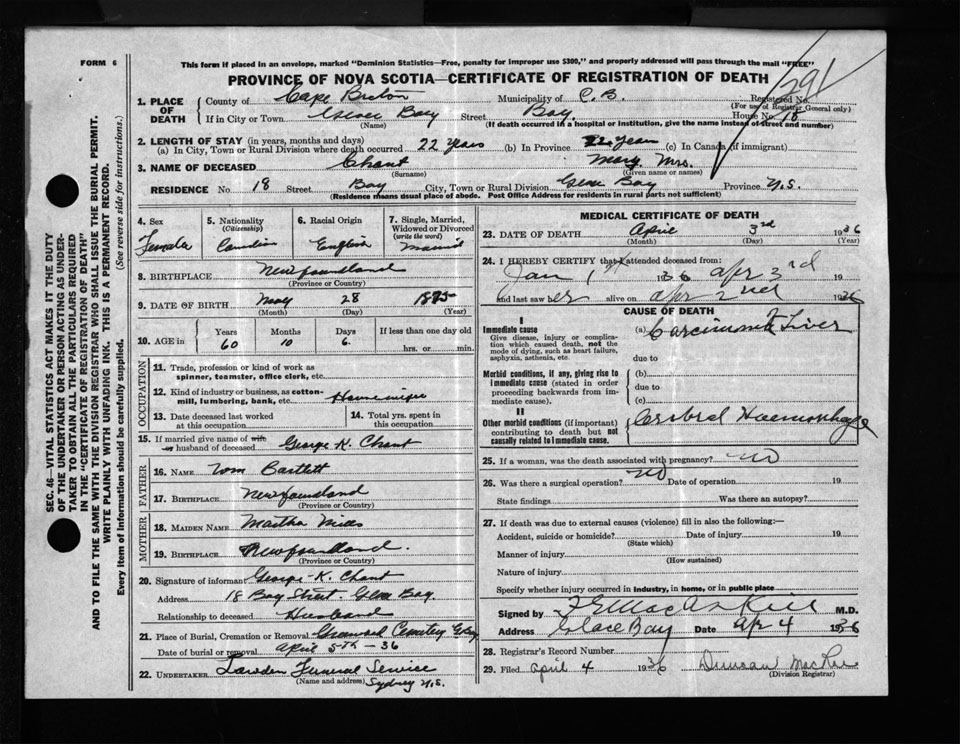 FORM 6
This form if placed in an envelope, marked "Dominion Statistics—Free, penalty for improper use $300," and properly addressed will pass through the mail "FREE"
PROVINCE OF NOVA SCOTIA—CERTIFICATE OF REGISTRATION OF DEATH
291
1. PLACE OF DEATH { County of Cape Breton Municipality of C.B. Registered No.
(For use of Registrar General only)
If in City or Town Glace Bay Street Bay House No. 18
(Name) (If death occurred in a hospital or institution, give the name instead of street and number)
2. LENGTH OF STAY (in years, months and days)
(a) In City, Town or Rural Division where death occurred 22 Years (b) In Province 22 Years (c) In Canada (if immigrant)
3. NAME OF DECEASED Chant Mary Mrs.
(Surname) (Given name or names)
RESIDENCE No. 18 Street Bay City, Town or Rural Division Glace Bay Province N.S.
(Residence means usual place of abode. Post Office Address for residents in rural parts not sufficient)
4. Sex 5. Nationality (Citizenship) 6. Racial Origin 7. Single, Married, Widowed or Divorced (write the word)
Female Canadian English Married
8. BIRTHPLACE Newfoundland
(Province or Country)
9. DATE OF BIRTH May 28 1875
(Month) (Day) (Year)
10. AGE in { Years Months Days If less than one day old
60 10 6. hrs. or min.
OCCUPATION
11. Trade, profession or kind of work as spinner, teamster, office clerk, etc.
12. Kind of industry or business, as cotton-mill, lumbering, bank, etc. Housewife
13. Date deceased last worked at this occupation
14. Total yrs. spent in this occupation
15. If married give name of wife or husband of deceased George K. Chant
FATHER
16. NAME Tom Bartlett
17. BIRTHPLACE Newfoundland
(Province or Country)
MOTHER
18. MAIDEN NAME Martha
19. BIRTHPLACE Newfoundland.
(Province or Country)
20. Signature of informant George K. Chant
Address 18 Bay Street. Glace Bay.
Relationship to deceased Husband
21. Place of Burial, Cremation or Removal Greenwood Cemetery G. Bay
Date of burial or removal April 5th - 36
22. UNDERTAKER Funeral Service
(Name and address) Sydney N.S.
MEDICAL CERTIFICATE OF DEATH
23. DATE OF DEATH April 3rd 1936
(Month) (Day) (Year)
24. I HEREBY CERTIFY that I attended deceased from:
Jan 1st 1936 Apr 3rd 19
and last saw her alive on Apr 2nd 1936
CAUSE OF DEATH
I
Immediate cause
Give disease, injury or complication which caused death, not the mode of dying, such as heart failure, asphyxia, asthenia, etc.
(a) Carcinoma of Liver
due to
Morbid conditions, if any, giving rise to immediate cause (stated in order proceeding backwards from immediate cause).
(b)
due to
(c)
II
Other morbid conditions (if important) contributing to death but not causally related to immediate cause.
Haemorrhage
25. If a woman, was the death associated with pregnancy? no
26. Was there a surgical operation? no Date of operation 19
State findings Was there an autopsy?
27. If death was due to external causes (violence) fill in also the following:—
Accident, suicide or homicide? Date of injury 19
(State which)
Manner of injury
(How sustained)
Nature of injury
Specify whether injury occurred in industry, in home, or in public place
Signed by MacAskill M.D.
Address Glace Bay Date Apr 4 1936
28. Registrar's Record Number
29. Filed April 4 1936 Duncan MacRae
(Division Registrar)
SEC. 46—VITAL STATISTICS ACT MAKES IT THE DUTY
OF THE UNDERTAKER OR PERSON ACTING AS UNDERTAKER
TO OBTAIN ALL THE PARTICULARS REQUIRED
IN THE "CERTIFICATE OF REGISTRATION OF DEATH"
AND TO FILE THE SAME WITH THE DIVISION REGISTRAR WHO SHALL ISSUE THE BURIAL PERMIT.
WRITE PLAINLY WITH UNFADING INK. THIS IS A PERMANENT RECORD.
Every item of information should be carefully supplied. (See reverse side for instructions.)